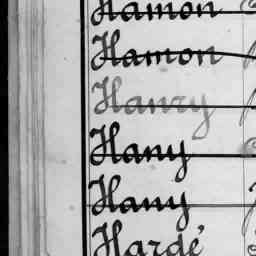 Hamon
Hamon
Hanry
Hany
Hany
Hardé